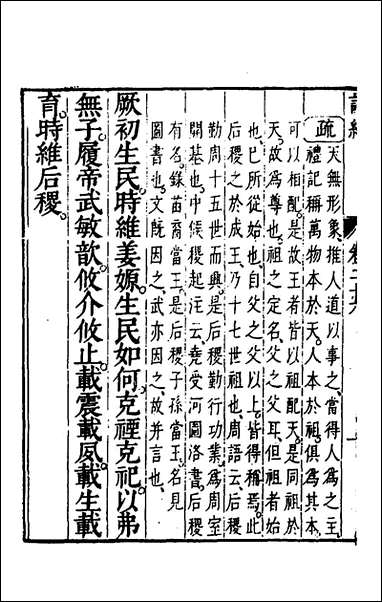 疏
天無形象推人道以事之當得人為之主
禮記稱萬物本於天人本於祖俱為其本
可以相配是故王者皆以祖配天是同祖於
天故為尊也祖之定名父之父耳但祖者始
也己所從始也自父之父以上皆得稱焉此
后稷之於成王乃十七世祖也周語云后稷
勤周十五世而興是后稷勤行功業為周室
開基也中候稷起注云堯受河圖洛書后稷
有名錄苗裔當王是后稷子孫當王名見
圖書也文既因之武亦因之故并言也
厥初生民時維姜嫄生民如何克禋克祀以弗
無子履帝武敏歆攸介攸止載震載夙載生載
育時維后稷